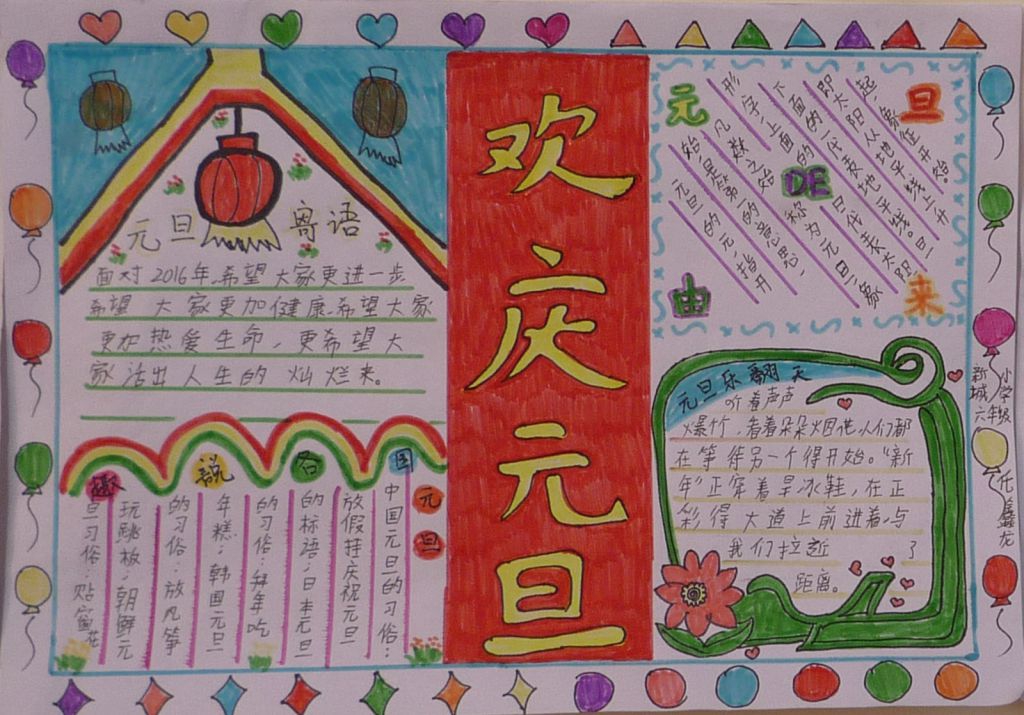 欢庆元旦
元旦寄语
面对2016年,希望大家更进一步
希望大家更加健康,希望大家
更加热爱生命,更希望大
家活出人生的灿烂来。
趣说各国元旦
中国元旦日的习俗:
放假挂庆祝元旦
的标语;日本元旦
的习俗:拜年吃
年糕;韩国元旦
的习俗:放风筝
玩跳板;朝鲜元
旦习俗:贴窗花
元旦DE由来
元旦的元,指开
始,是第一的意思,
凡数之始称为元旦;象
形字,上面的日代表太阳,
下面的一代表地平线。旦
即太阳从地平线上升
起,象征开始
元旦乐翻天
听着声声
爆竹,看着朵朵烟花,人们都
在等待另一个得开始。"新
年"正穿着旱冰鞋,在正
彩得大道上前进着,与
我们拉近了
距离。
新城小学
六年级
任鑫龙